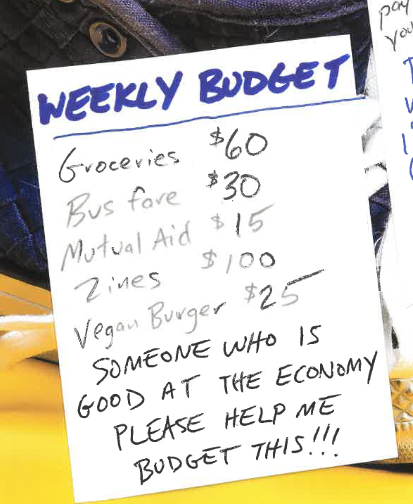 WEEKLY BUDGET
Groceries $60
Bus fare $30
Mutual Aid $15
Zines $100
Vegan Burger $25
SOMEONE WHO IS
GOOD AT THE ECONOMY
PLEASE HELP ME
BUDGET THIS!!!
pay
you